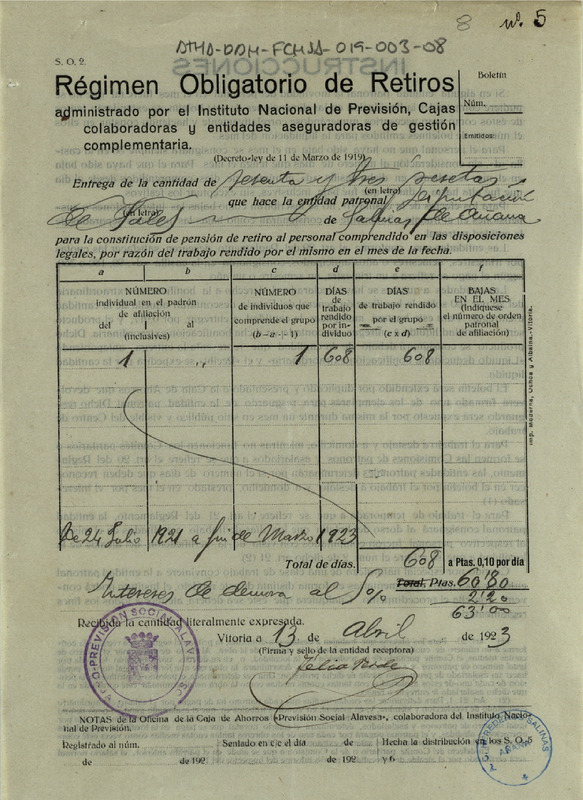 8 nº 5
ATHA-DDH-FCHSA-019-003-08
S. O. 2.
Régimen Obligatorio de Retiros
administrado por el Instituto Nacional de Previsión, Cajas
colaboradoras y entidades aseguradoras de gestión
complementaria.
(Decreto-ley de 11 de Marzo de 1919)
Boletín
Núm.
Emitidos:
Entrega de la cantidad de sesenta y tres pesetas
(en letra)
que hace la entidad patronal Diputación
de Sales de Salinas de Añana
(en letra)
para la constitución de pensión de retiro al personal comprendido en las disposiciones
legales, por razón del trabajo rendido por el mismo en el mes de la fecha.
a b c d e f
NÚMERO individual en el padrón de afiliación del | al (inclusives)
NÚMERO de individuos que comprende el grupo (b – a + 1)
DÍAS de trabajo rendido por individuo
DÍAS de trabajo rendido por el grupo (c x d)
BAJAS EN EL MES (Indíquese el número de orden patronal de afiliación)
1 1 608 608
De 24 Julio 1921 a fin de Marzo 1923
Total de días. 608 a Ptas. 0,10 por día
Total, Ptas. 60'80
Intereses de demora al 5% 2'20
63'00
Recibida la cantidad literalmente expresada.
Vitoria a 13 de Abril de 1923
(Firma y sello de la entidad receptora)
NOTAS de la Oficina de la Caja de Ahorros «Previsión Social Alavesa», colaboradora del Instituto Nacional de Previsión.
Registrado al núm. Sentado en c/c el día de Hecha la distribución en los S. O. 5
de de 192 de 192 y 6
Imp. Moderna, Uchoa y Albaina.-Vitoria.